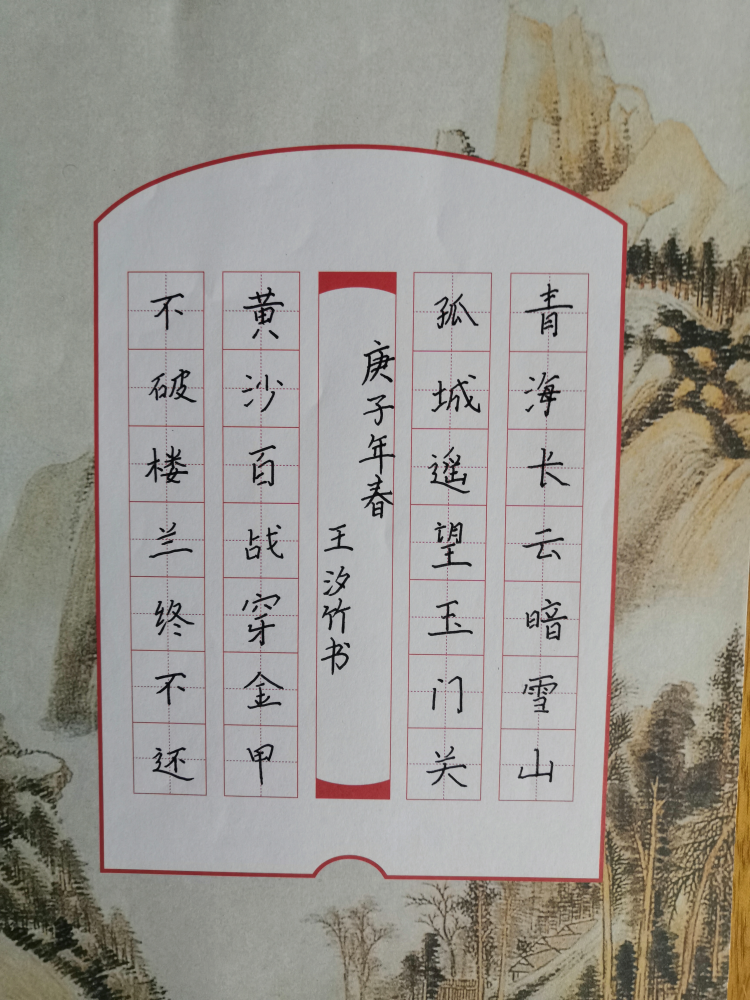 青海长云暗雪山
孤城遥望玉门关
庚子年春
王汐竹书
黄沙百战穿金甲
不破楼兰终不还